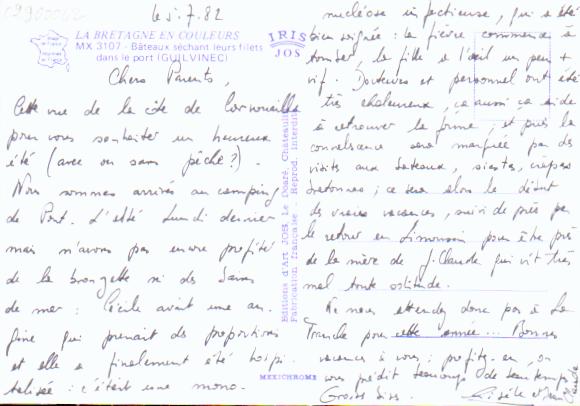 29900042
le 5.7.82
LA BRETAGNE EN COULEURS
MX 3107 - Bâteaux séchant leurs filets
dans le port (GUILVINEC)
IRIS
JOS
Chers Parents,
Cette vue de la côte de Cornouaille
pour vous souhaiter un heureux
été (avec ou sans pêche ?).
Nous sommes arrivés au camping
de Pont. L'abbé lundi dernier
mais n'avons pas encore profité
de la bronzette ni des bains
de mer : Cécile avait une an-
gine qui prenait des proportions
et elle a finalement été hospi-
talisée : c'était une mono-
Editions d'Art JOS Le Doaré, Châteaulin
Fabrication française - Reprod. Interdite
MEXICHROME
nucléose infectieuse, qui a été
bien soignée : la fièvre commence à
tomber, la fille a l'œil un peu +
vif. Docteurs et personnel ont été
très chaleureux, ça aussi ça aide
à retrouver la forme ; et puis la
convalescence sera marquée par des
visites aux bateaux, siestes, crêpes
bretonnes ; ce sera alors le début
des vraies vacances, suivi de près par
le retour en Limousin pour être près
de la mère de J. Claude qui vit très
mal toute solitude.
Ne nous attendez donc pas à La
Tranche pour cette année... Bonnes
vacances à vous : profitez-en, on
vous prédit beaucoup de beau temps
Grosses bises. Gisèle et Jean
Claude